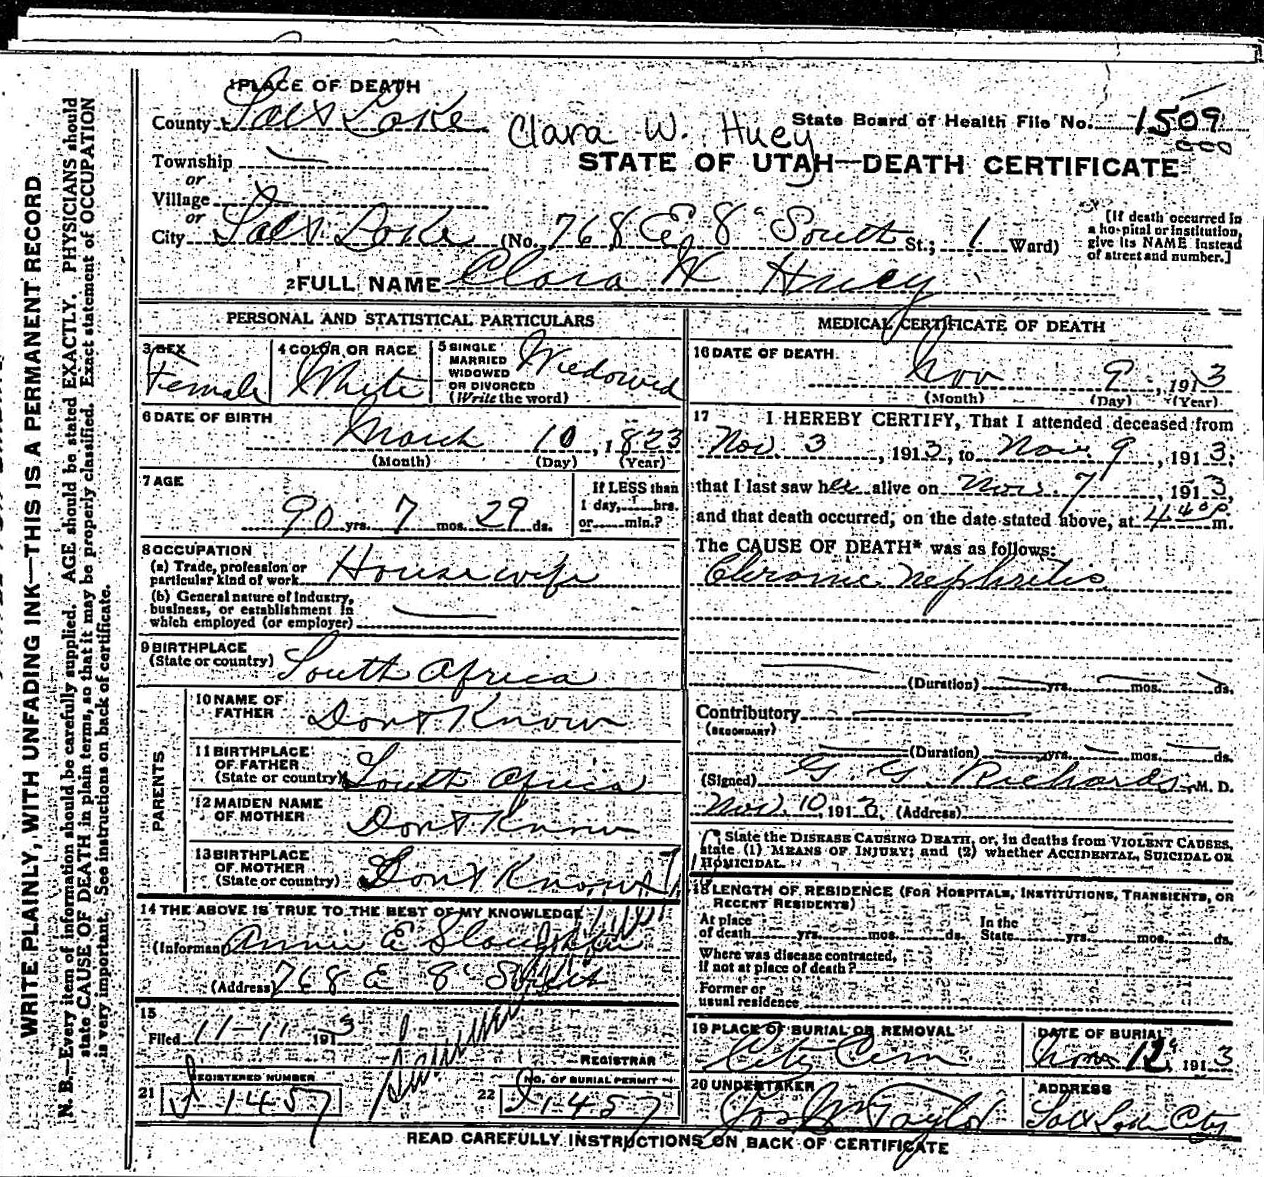 WRITE PLAINLY, WITH UNFADING INK—THIS IS A PERMANENT RECORD
N. B.—Every item of information should be carefully supplied. AGE should be stated EXACTLY. PHYSICIANS should
state CAUSE OF DEATH in plain terms, so that it may be properly classified. Exact statement of OCCUPATION
is very important. See instructions on back of certificate.
1 PLACE OF DEATH
County Salt Lake
Clara W. Huey
State Board of Health File No. 1509
Township —
or
STATE OF UTAH—DEATH CERTIFICATE
Village
or
City Salt Lake (No. 768 E 8" South St.; 1 Ward)
[If death occurred in
a hospital or institution,
give its NAME instead
of street and number.]
2 FULL NAME Clara W Huey
PERSONAL AND STATISTICAL PARTICULARS
3 SEX
Female
4 COLOR OR RACE
White
5 SINGLE
MARRIED
WIDOWED
OR DIVORCED
(Write the word)
Widowed
6 DATE OF BIRTH
March 10, 1823
(Month) (Day) (Year)
7 AGE
90 yrs. 7 mos. 29 ds.
If LESS than
1 day, hrs.
or min.?
8 OCCUPATION
(a) Trade, profession or
particular kind of work Housewife
(b) General nature of industry,
business, or establishment in
which employed (or employer) —
9 BIRTHPLACE
(State or country) South Africa
PARENTS
10 NAME OF
FATHER Dont Know
11 BIRTHPLACE
OF FATHER
(State or country) South Africa
12 MAIDEN NAME
OF MOTHER Dont Know
13 BIRTHPLACE
OF MOTHER
(State or country) Dont Know
14 THE ABOVE IS TRUE TO THE BEST OF MY KNOWLEDGE
(Informant) Annie E Slaughter
(Address) 768 E 8" South
15
Filed 11-11 1913
REGISTRAR
REGISTERED NUMBER
21 1457
NO. OF BURIAL PERMIT
22 1457
MEDICAL CERTIFICATE OF DEATH
16 DATE OF DEATH
Nov 9, 1913
(Month) (Day) (Year)
17 I HEREBY CERTIFY, That I attended deceased from
Nov. 3, 1913, to Nov. 9, 1913;
that I last saw her alive on Nov. 7, 1913,
and that death occurred, on the date stated above, at 4 40 P. m.
The CAUSE OF DEATH* was as follows:
Chronic Nephritis
(Duration) — yrs. — mos. — ds.
Contributory —
(SECONDARY)
(Duration) — yrs. — mos. — ds.
(Signed) G. G. Richards, M. D.
Nov. 10, 1913, (Address)
State the DISEASE CAUSING DEATH, or, in deaths from VIOLENT CAUSES,
state (1) MEANS OF INJURY; and (2) whether ACCIDENTAL, SUICIDAL OR
HOMICIDAL.
18 LENGTH OF RESIDENCE (FOR HOSPITALS, INSTITUTIONS, TRANSIENTS, OR
RECENT RESIDENTS)
At place In the
of death yrs. mos. ds. State yrs. mos. ds.
Where was disease contracted,
if not at place of death?
Former or
usual residence
19 PLACE OF BURIAL OR REMOVAL
City Cem
DATE OF BURIAL
Nov 12, 1913
20 UNDERTAKER
Jos Wm Taylor
ADDRESS
Salt Lake City
READ CAREFULLY INSTRUCTIONS ON BACK OF CERTIFICATE